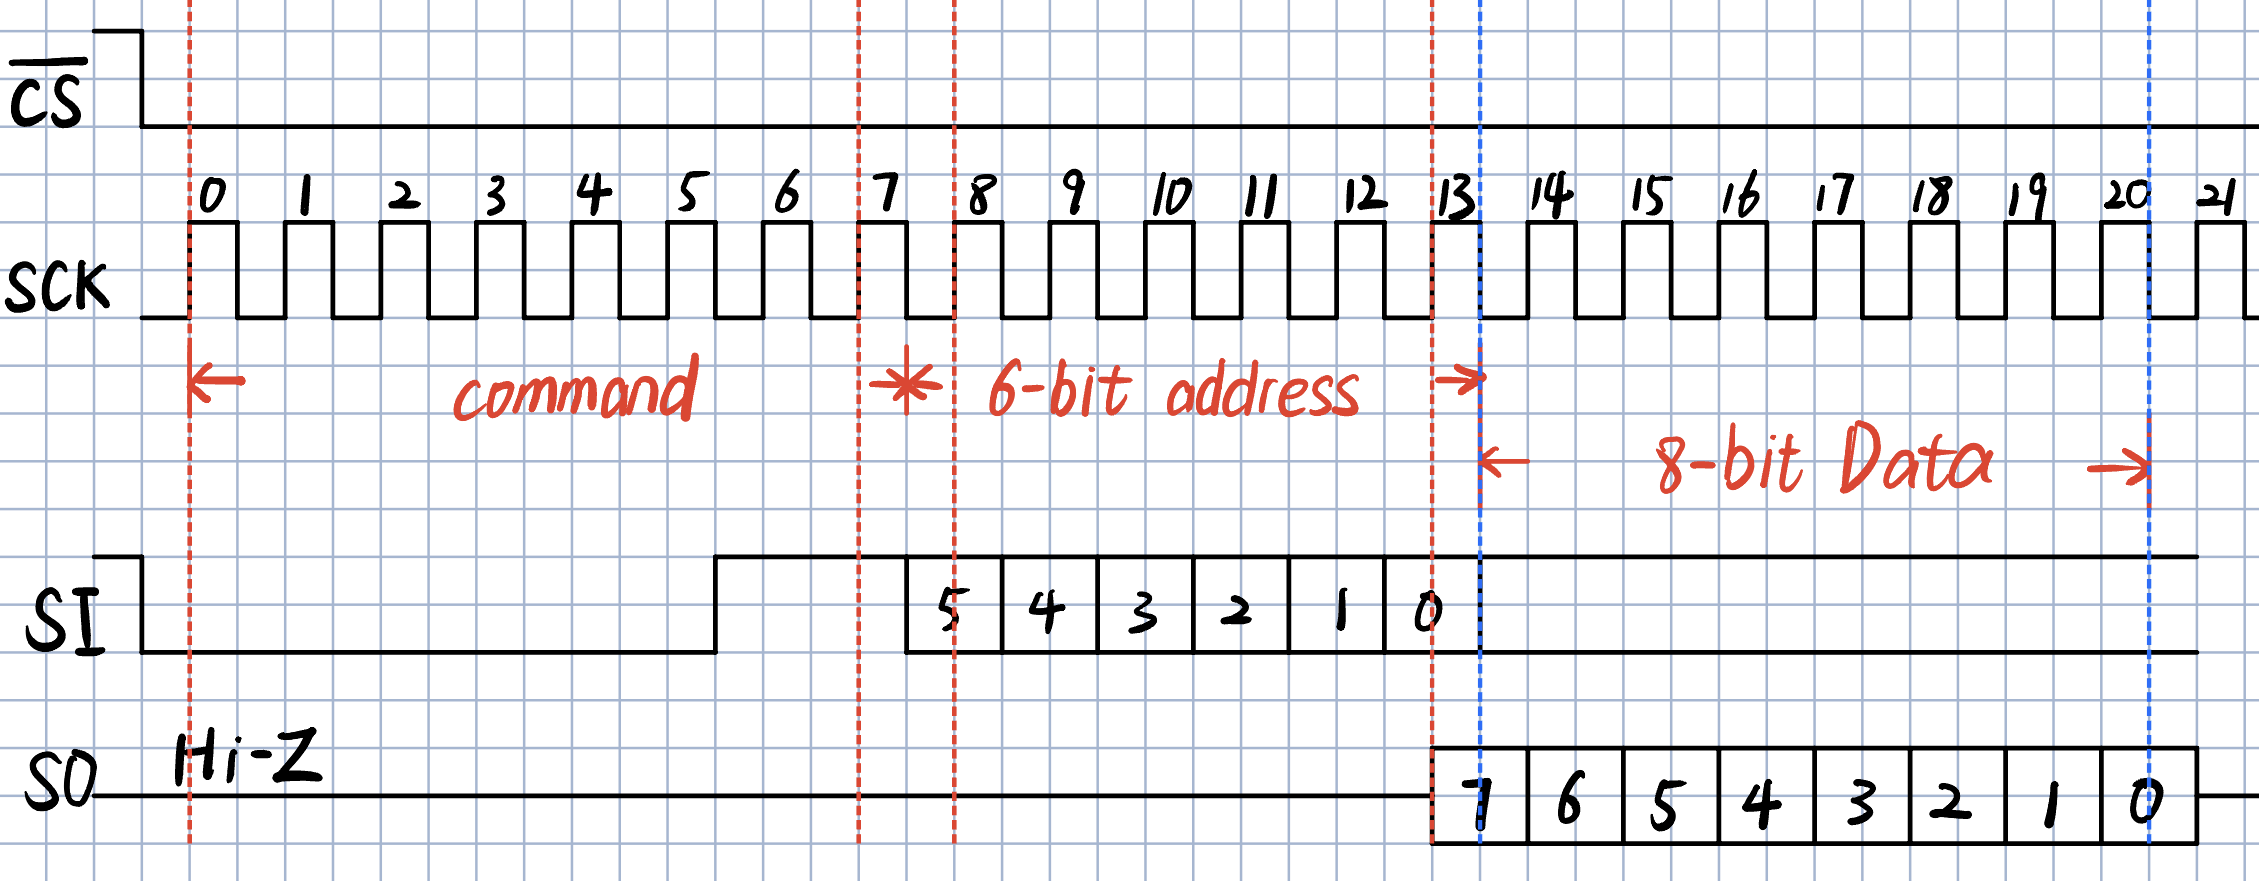 CS
0 1 2 3 4 5 6 7 8 9 10 11 12 13 14 15 16 17 18 19 20 21
SCK
command 6-bit address
8-bit Data
SI 5 4 3 2 1 0
Hi-Z
SO 7 6 5 4 3 2 1 0